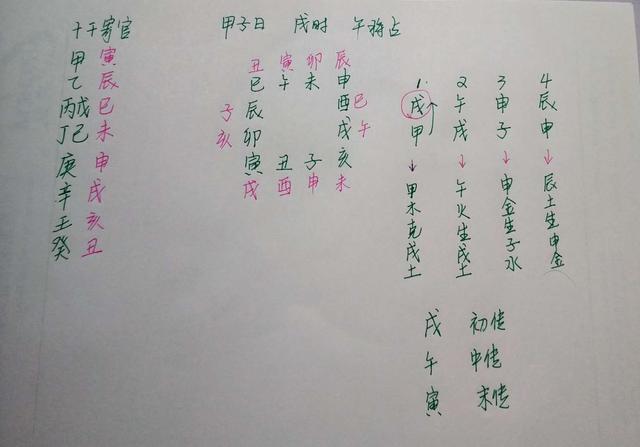 十干寄官
甲 寅
乙 辰
丙戊 巳
丁己 未
庚 申
辛 戌
壬 亥
癸 丑
甲子日 戌时 午将占
丑 寅 卯 辰
巳 午 未 申
子 辰 酉 巳
亥 卯 戌 午
寅 丑 子 亥
戌 酉 申 未
1. 2 3 4
戌 午 申 辰
甲 戌 子 申
↓ ↓ ↓ ↓
甲木克戌土
午火生戌土
申金生子水
辰土生申金
戌 初传
午 中传
寅 末传